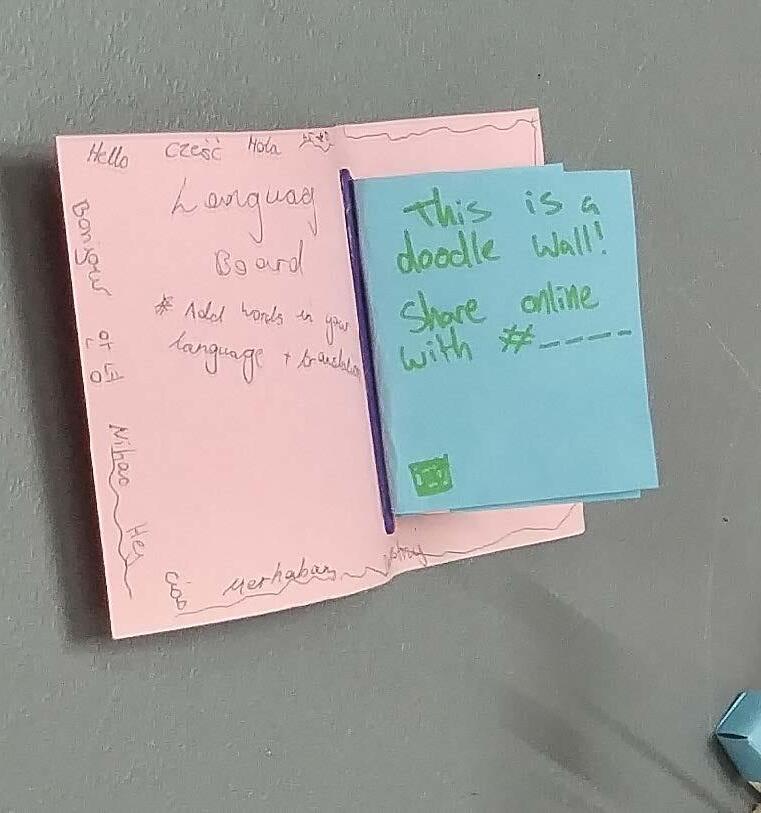 Hello Cześć Hola
Languag
Board
* Add words in your
language + translation
Bonjour
안녕
Nihao
Hey
Ciao
Merhaba
This is a
doodle Wall!
Share online
with #____